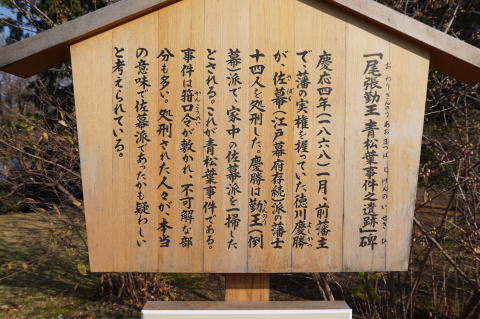 「尾張勤王青松葉事件之遺跡」碑
おわりきんのうあおまつばじけんのいせきひ
慶応四年(一八六八)一月、前藩主
で、藩の実権を握っていた徳川慶勝
よしかつ
が、佐幕(江戸幕府存続)派の藩士
さばく
十四人を処刑した。慶勝は勤王(倒
幕)派で、家中の佐幕派を一掃した
とされる。これが青松葉事件である。
事件は箝口令が敷かれ、不可解な部
かんこうれい
分も多い。処刑された人々が、本当
の意味で佐幕派であったかも疑わしい
と考えられている。